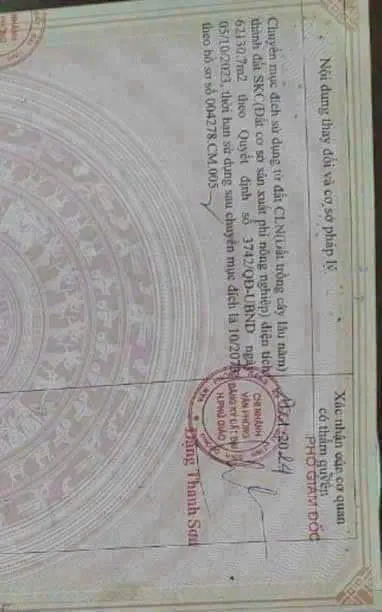 Nội dung thay đổi và cơ sở pháp lý
Xác nhận của cơ quan
có thẩm quyền
Chuyển mục đích sử dụng từ đất CLN(Đất trồng cây lâu năm)
thành đất SKC(Đất cơ sở sản xuất phi nông nghiệp) diện tích
62130.7m2 theo Quyết định số 3742/QĐ-UBND ngày
05/10/2023, thời hạn sử dụng sau chuyển mục đích là 10/207
theo hồ sơ số 004278.CM.005
2024
PHÓ GIÁM ĐỐC
CHI NHÁNH
VĂN PHÒNG
ĐĂNG KÝ ĐẤT ĐAI
H.PHÚ GIÁO
Đặng Thanh Sơn